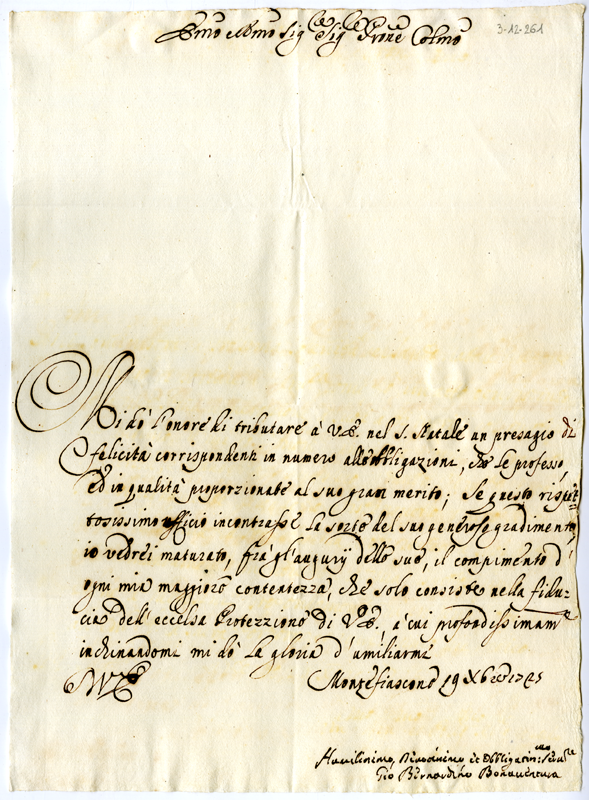 Emo e Rmo Sig.re Sig.re Prone Colmo
3-12-261
Mi dò l'onore di tributare à V.E. nel S. Natale un presagio di
felicità corrispondenti in numero all'obbligazioni, che le professo,
ed in qualità proporzionate al suo gran merito; Se questo rispet=
tosissimo ufficio incontrasse la sorte del suo generoso gradimento,
io vedrei maturato, frà gl'augurij delle sue, il compimento d'
ogni mia maggiore contentezza, che solo consiste nella fidu=
cia dell'eccelsa Protezzione di V.E. à cui profondissimam.e
inchinandomi mi dò la gloria d'umiliarmi
Montefiascone 19 Xbre 1725
Humilissimo, Divotissimo et Obbligatis:mo Serv.re
Gio Bernardino Bonaventura